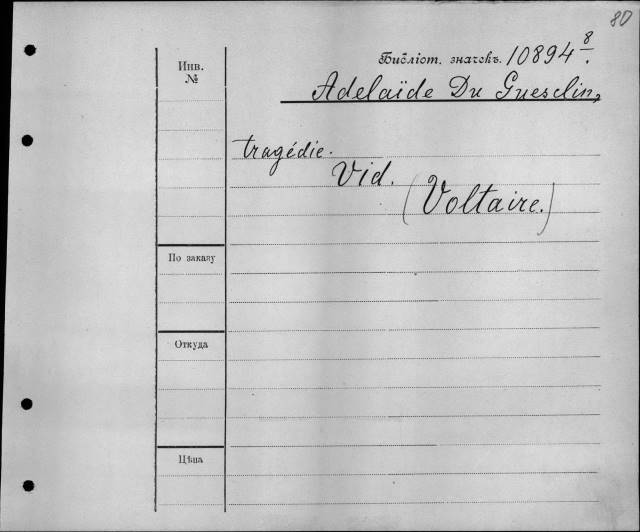 80
Библіот. значекъ. 10894 8/.
Инв.
№
Adelaïde Du Guesclin,
tragédie.
Vid.
(Voltaire.)
По заказу
Откуда
Цѣна